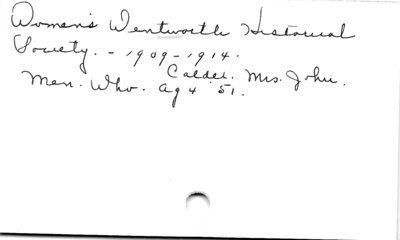 Women's Wentworth Historical
Society. - 1909-1914.
Calder. Mrs. John.
Men. Who. Ag 4 51.